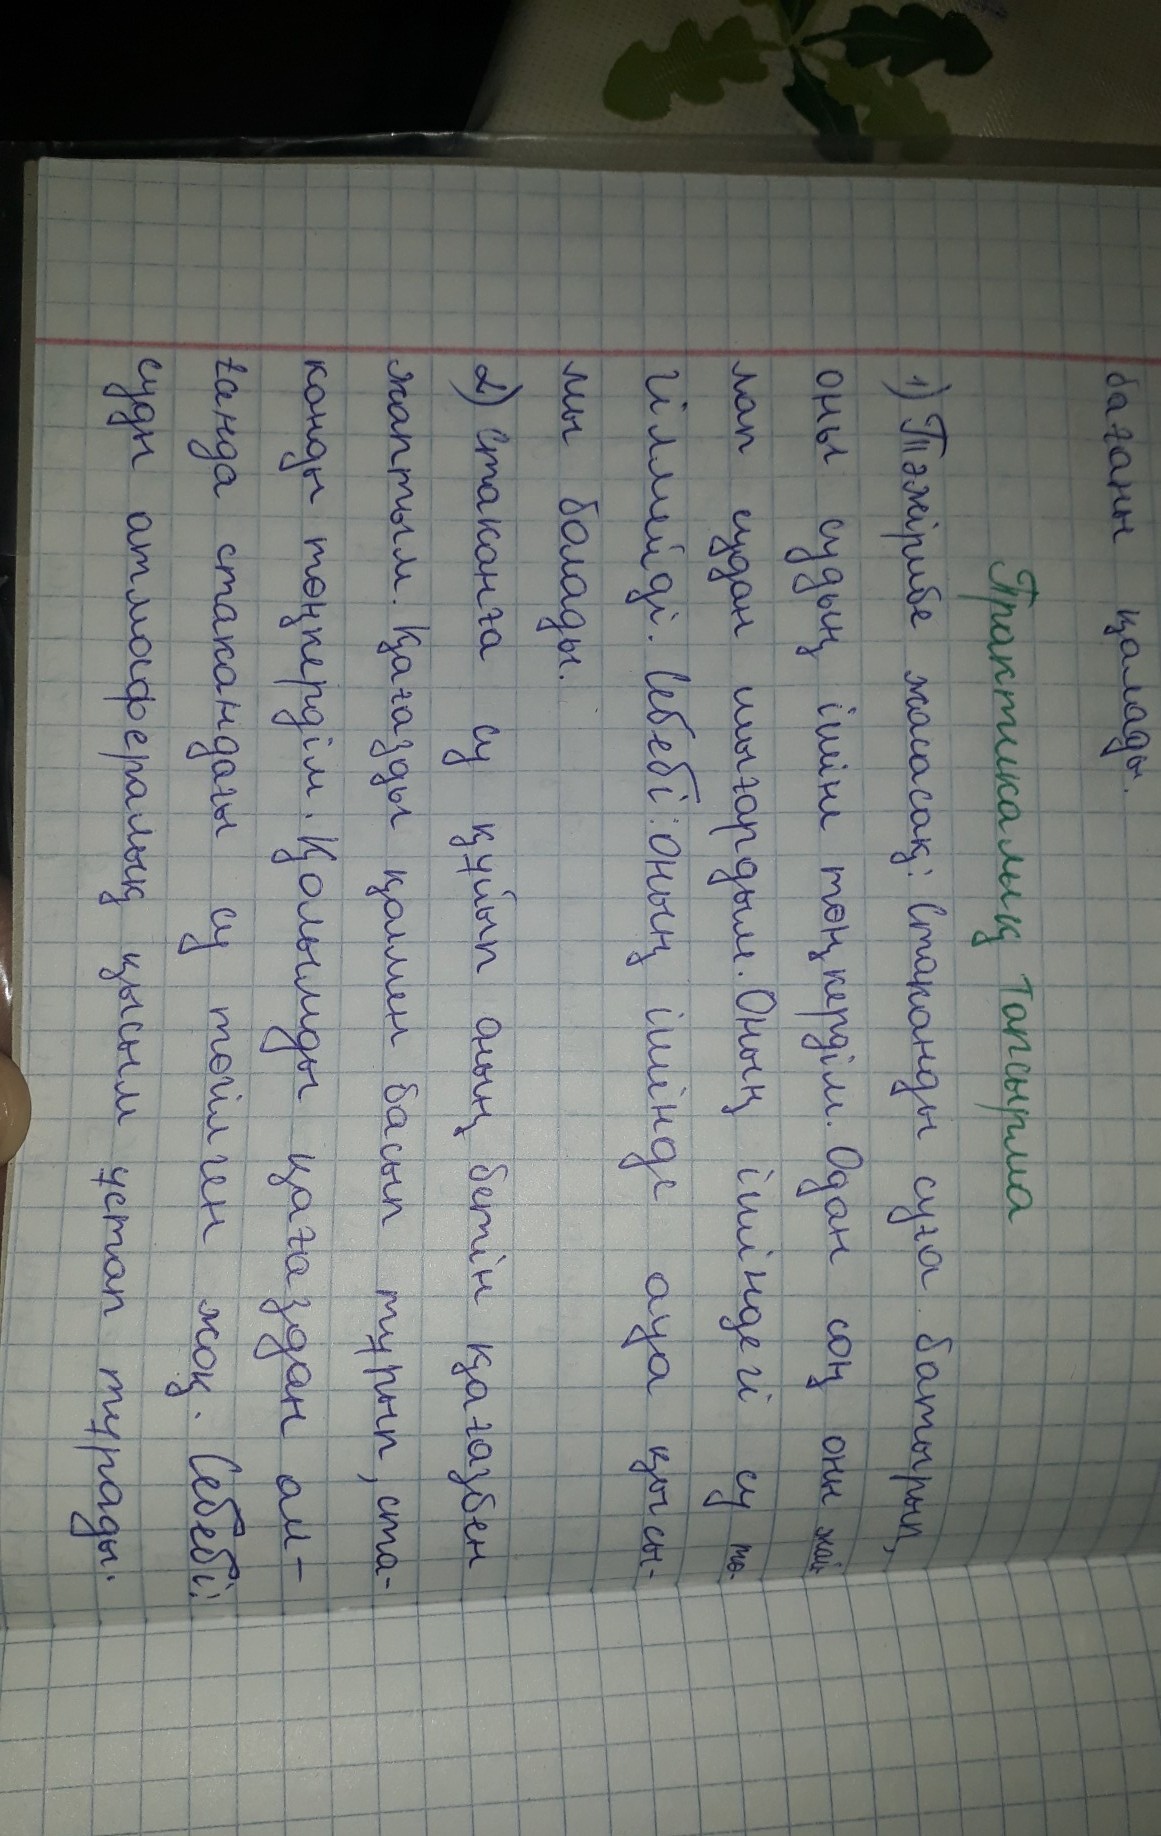 бағаны қалады.
Практикалық тапсырма
1) Тәжірибе жасасақ: Стаканды суға батырып,
оны судың ішіне төңкердім. Одан соң оны жай-
лап судан шығардым. Оның ішіндегі су тө-
гілмейді. Себебі: Оның ішінде ауа қысы-
мы болады.
2) Стаканға су құйып оның бетін қағазбен
жаптым. Қағазды қолмен басып тұрып, ста-
канды төңкердім. Қолымды қағаздан ал-
ғанда стакандағы су төгілген жоқ. Себебі:
суды атмосфералық қысым ұстап тұрады.